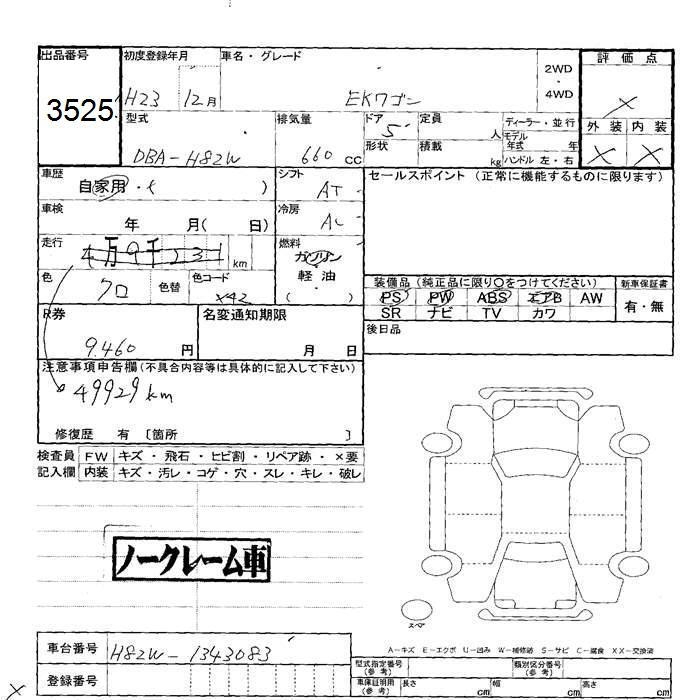 出品番号
3525
初度登録年月
H23 12月
車名・グレード
EKワゴン
2WD
4WD
評価点
×
外装 内装
× ×
型式
DBA-H82W
排気量
660 cc
ドア
5
定員
人
形状
積載
kg
ディーラー・並行
モデル年式 年
ハンドル 左・右
車歴
自家用・( )
シフト
AT
セールスポイント (正常に機能するものに限ります)
車検
年 月( 日)
冷房
AC
走行
4万9千231 km
燃料
ガソリン
軽油
( )
色
クロ
色替
色コード
X42
装備品 (純正品に限り○をつけてください)
PS PW ABS エアB AW
SR ナビ TV カワ
新車保証書
有・無
R券
9.460 円
名変通知期限
月 日
後日品
注意事項申告欄 (不具合内容等は具体的に記入して下さい)
49929km
修復歴 有 〔箇所 〕
検査員 FW キズ・飛石・ヒビ割・リペア跡・×要
記入欄 内装 キズ・汚レ・コゲ・穴・スレ・キレ・破レ
ノークレーム車
スペア
A-キズ E-エクボ U-凹み W-補修跡 S-サビ C-腐食 XX-交換済
車台番号
H82W-1343083
登録番号
型式指定番号
(参考)
類別区分番号
(参考)
車庫証明用
(参考)
長さ cm 幅 cm 高さ cm
×